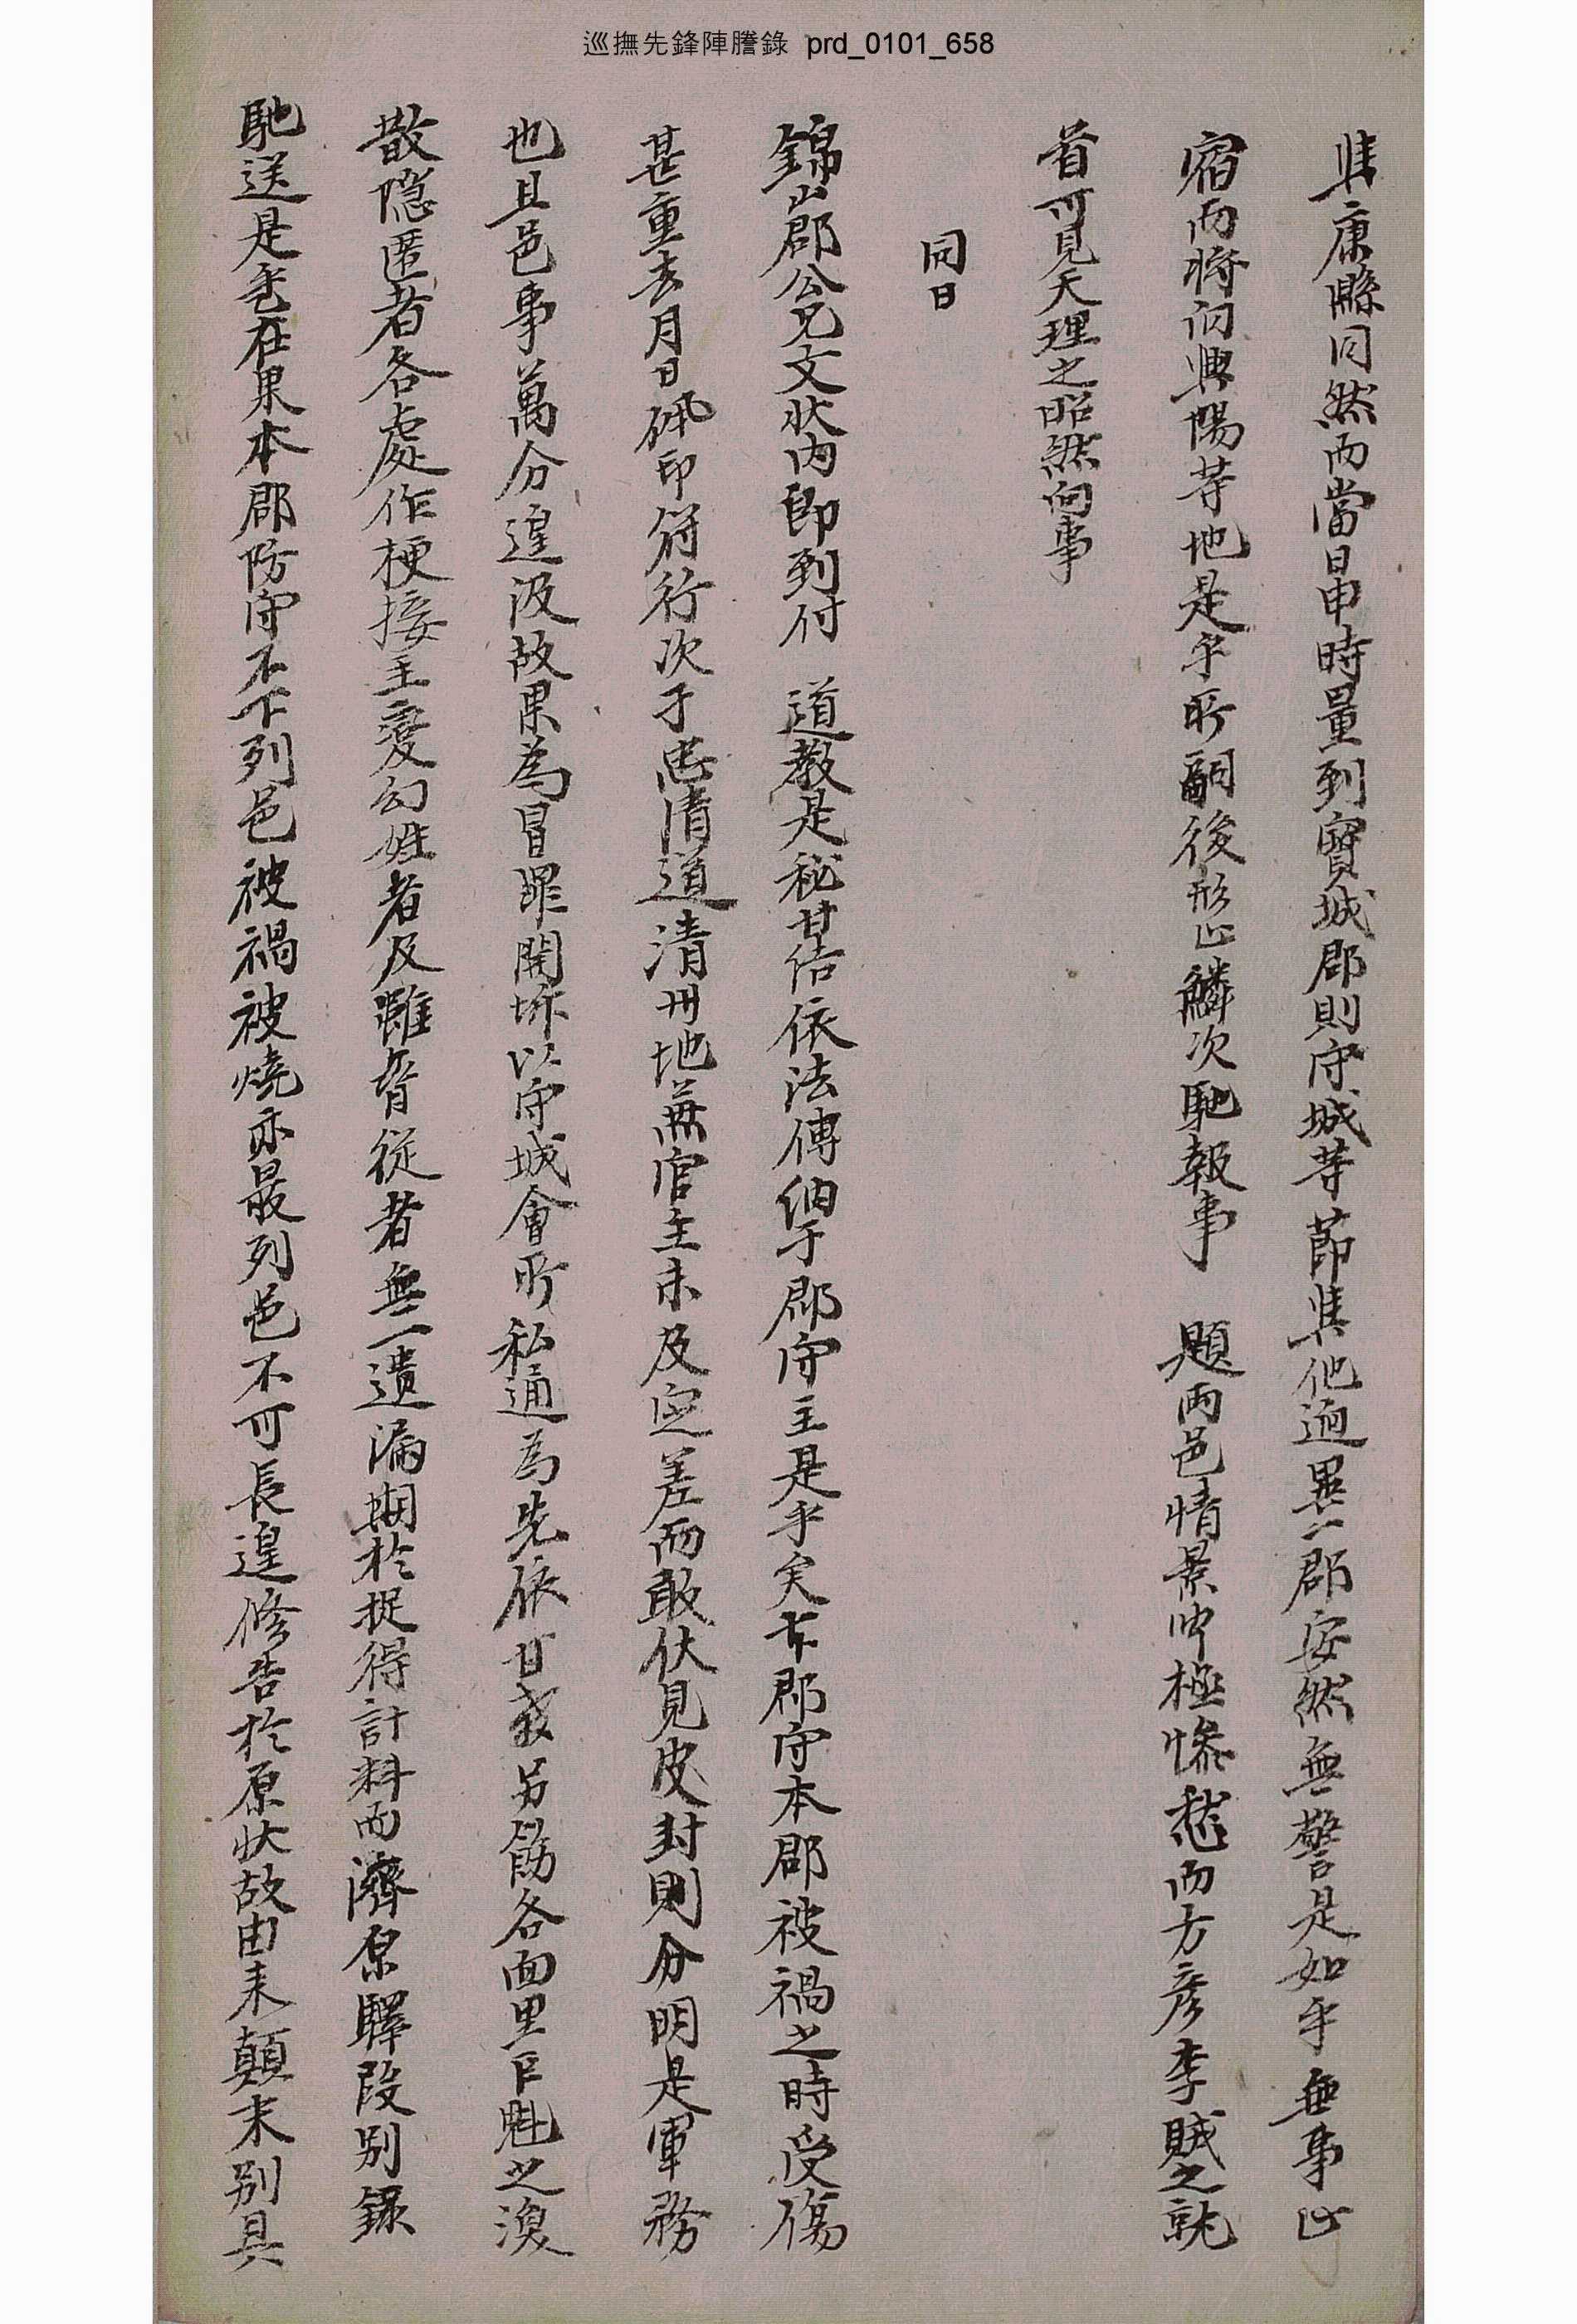 巡撫先鋒陣謄錄 prd_0101_658
其康縣同然而當日申時量到寶城郡則守城等節其他逈異一郡安然無警是如乎無事止
宿而將向興陽等地是乎所嗣後形止鱗次馳報事 題兩邑情景叩極慘愁而方彦李賊之就
首可見天理之昭然向事
同日
錦山郡公兄文狀內卽到付 道教是秘甘結依法傳納于郡守主是乎矣本郡守本郡被禍之時受傷
甚重去月日佩印符行次于忠淸道淸州地兼官主未及定差而敢伏見皮封則分明是軍務
也且邑事萬分遑汲故果爲冒罪開坼以守城會所私通爲先依甘 另飭各面里巨魁之渙
散隱匿者各處作梗接主 幻姓者及雖脅從者無一遺漏期於捉得計料而濟原驛段別錄
馳送是乎在果本郡防守不下列邑被禍被燒亦最列邑不可長遑修告於原狀故由來顛末別具